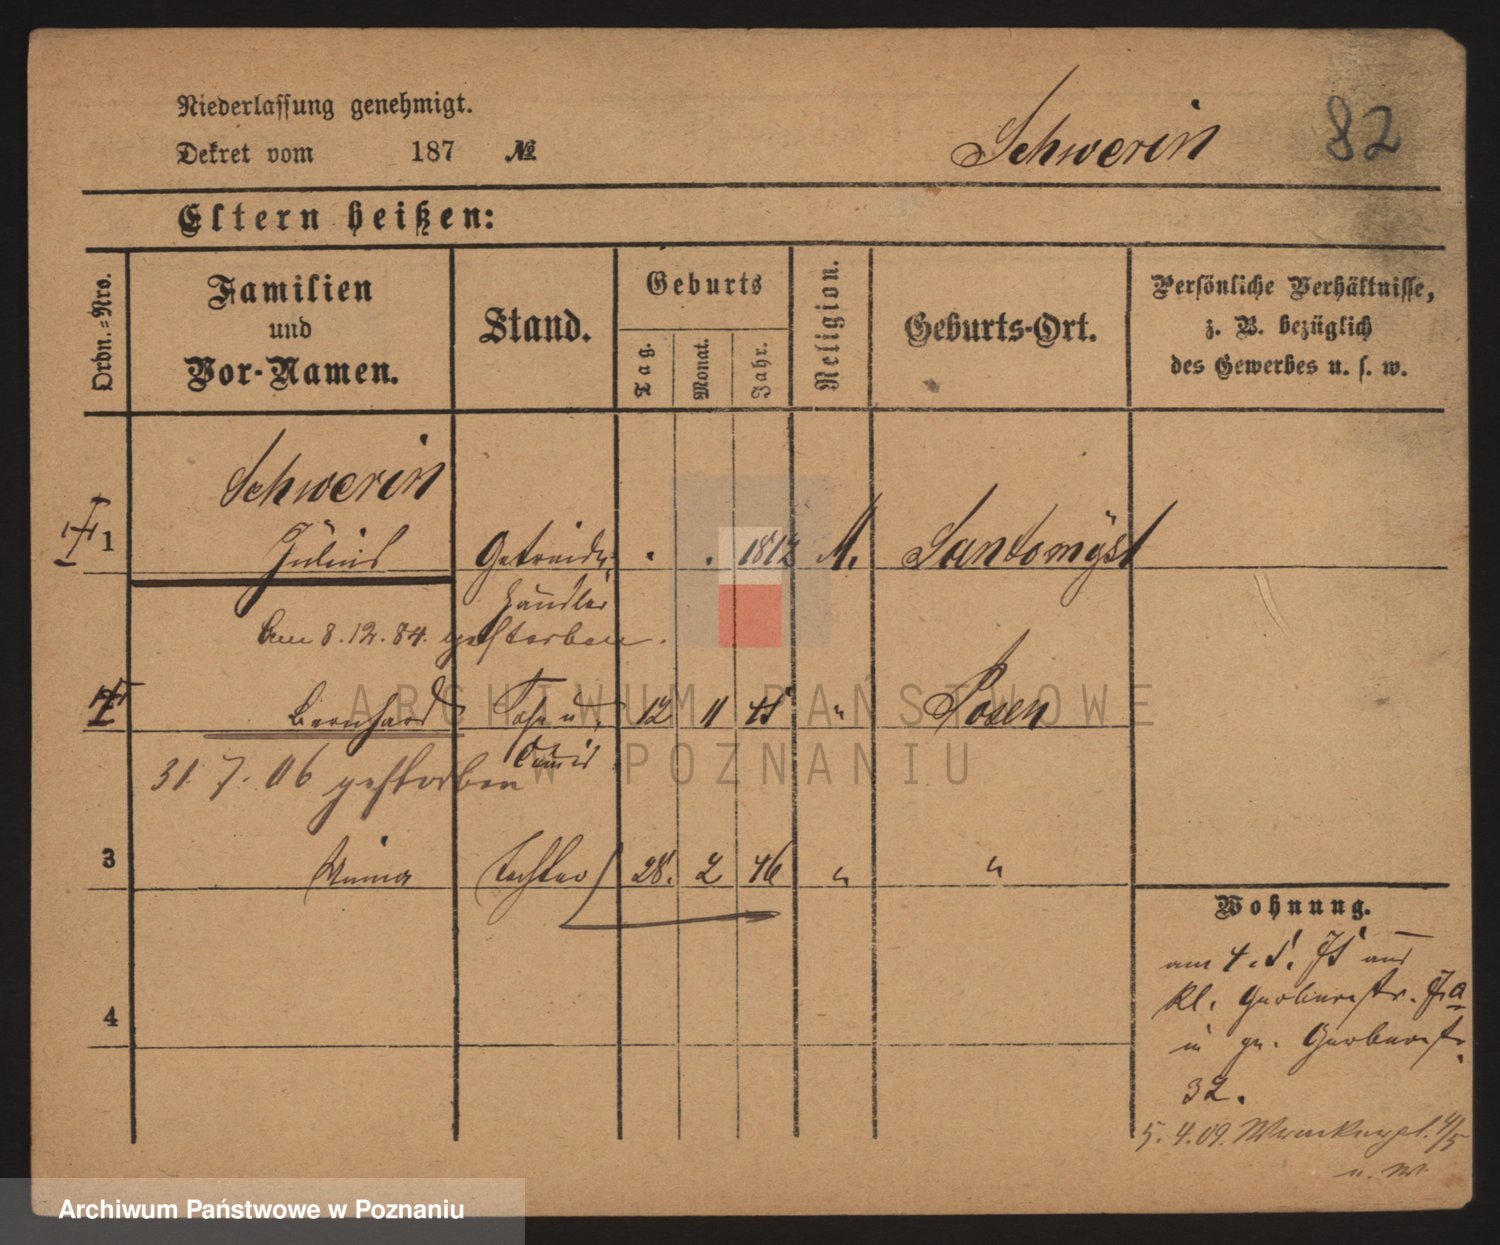 Niederlassung genehmigt.
Dekret vom 187 №
Schwerin 82
Eltern heißen:
Ordn.=Nro.
Familien
und
Vor-Namen.
Stand.
Geburts
Tag.
Monat.
Jahr.
Religion.
Geburts-Ort.
Persönliche Verhältnisse,
z. B. bezüglich
des Gewerbes u. s. w.
Schwerin
1 Julius Getreide- . . 1812 M. Santomysl
händler
Am 8.12.84. gestorben.
Bernhard 12 11 " Posen
31. 7. 06 gestorben
3 Mina Tochter 28. 2 46 " "
Wohnung.
am 4. d. aus
kl. Gerberstr. 7a
in gr. Gerberstr.
32.
4
5. 4. 09. 4/5
ARCHIWUM PAŃSTWOWE
W POZNANIU
Archiwum Państwowe w Poznaniu